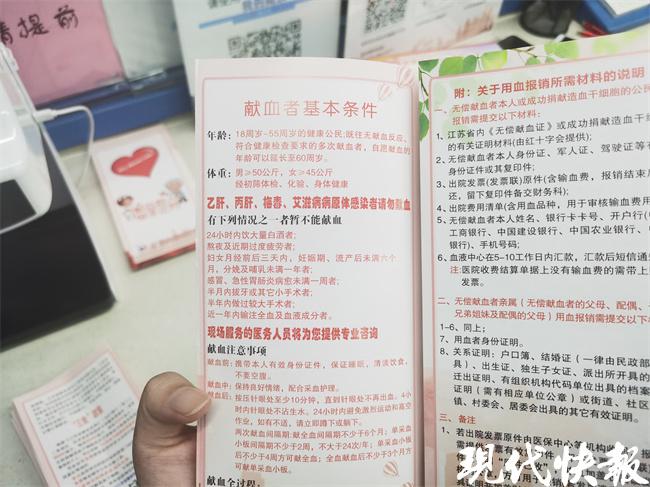 请提前
献血者基本条件
年龄：18周岁~55周岁的健康公民；既往无献血反应、
符合健康检查要求的多次献血者，自愿献血的
年龄可以延长至60周岁。
体重：男≥50公斤，女≥45公斤
经初筛体检、化验、身体健康
乙肝、丙肝、梅毒、艾滋病病原体感染者请勿献血
有下列情况之一者暂不能献血
24小时内饮大量白酒者；
熬夜及近期过度疲劳者；
妇女月经前后三天内，妊娠期、流产后未满六个
月，分娩及哺乳未满一年者；
感冒、急性胃肠炎病愈未满一周者；
半月内拔牙或其它小手术者；
半年内做过较大手术者；
近一年内输注全血及血液成分者。
现场服务的医务人员将为您提供专业咨询
献血注意事项
献血前：携带本人有效身份证件，保证睡眠，清淡饮食，
不要空腹。
献血中：保持良好情绪，配合采血护理。
献血后：按压针眼处至少10分钟，直到针眼处不再出血。4小
时内针眼处不沾生水。24小时内避免激烈运动和高空
作业，如有不适，请立即蹲下或躺下。
两次献血间隔期：献全血间隔期不少于6个月；单采血
小板间隔期不少于2周，不大于24次/年；单采血小板
后不少于4周方可献全血；全血献血后不少于3个月方
可献单采血小板。
献血全过程：
附：关于用血报销所需材料的说明
一、无偿献血者本人或成功捐献造血干细胞的公民
报销需提交以下材料：
1、江苏省内《无偿献血证》或成功捐献造血干细
的有关证明材料（由红十字会提供）；
2、无偿献血者本人身份证、军人证、驾驶证等有
身份证件或其复印件；
3、出院发票（发票联）原件（含输血费，报销结束后
还，留下复印件备交财务科）；
4、出院费用清单（含用血品种，用于审核输血费用
5、无偿献血者本人姓名、银行卡卡号、开户行（中
工商银行、中国建设银行、中国农业银行、中
银行）、手机号码；
6、血液中心在5-10工作日内汇款，汇款后短信通
注：医院收费结算单据上没有输血费的需带上
发票。
二、无偿献血者亲属（无偿献血者的父母、配偶、
兄弟姐妹及配偶的父母）用血报销需提交以
1-6、同上；
7、用血者身份证明。
8、关系证明：户口簿、结婚证（一律由民政部
具）、出生证、独生子女证、派出所开具的
迁出证明、有组织机构代码单位出具的档案
证明（需有相应单位公章）或街道、社区
镇、村委会、居委会出具的其它有效证明。
三、备注
1、若出院发票原件由医保中心
现代快报